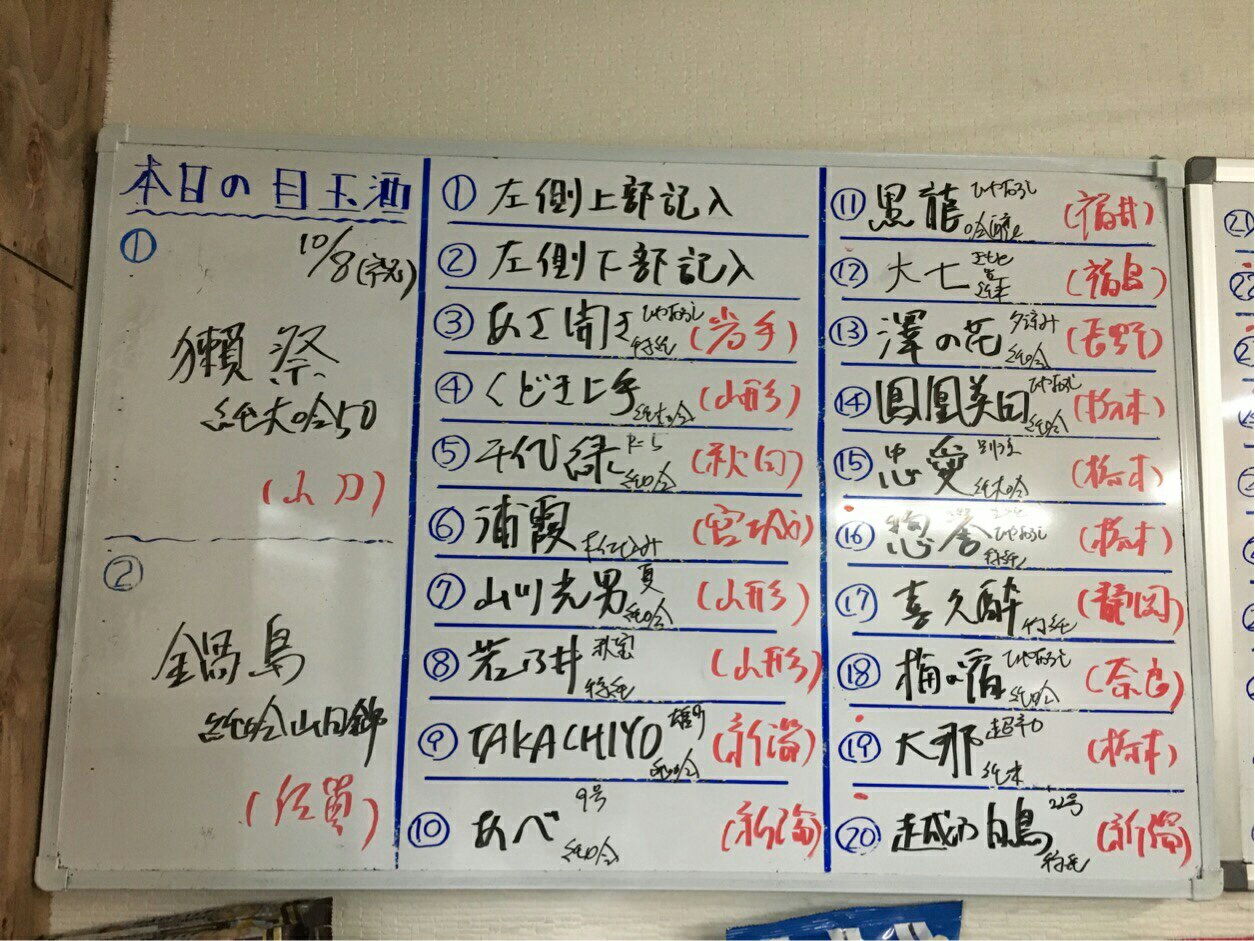 本日の目玉酒
①
10/8
獺祭
純大吟50
(山口)
②
鍋島
純吟山田錦
(佐賀)
① 左側上部記入
② 左側下部記入
③ あさ開き ひやおろし 特純 (岩手)
④ くどき上手 純大吟 (山形)
⑤ 千代緑 K-5 純吟 (秋田)
⑥ 浦霞 (宮城)
⑦ 山川光男 夏 純吟 (山形)
⑧ 若乃井 特純 (山形)
⑨ TAKACHIYO 純吟 (新潟)
⑩ あべ 9号 純吟 (新潟)
⑪ 黒龍 ひやおろし (福井)
⑫ 大七 純米 (福島)
⑬ 澤の花 夕涼み 純吟 (長野)
⑭ 鳳凰美田 ひやおろし 純吟 (栃木)
⑮ 忠愛 純大吟 (栃木)
⑯ 惣誉 ひやおろし 特純 (栃木)
⑰ 喜久酔 特純 (静岡)
⑱ 梅の宿 ひやおろし 純吟 (奈良)
⑲ 大那 超辛口 純米 (栃木)
⑳ 越の白鳥 22号 特純 (新潟)
21
22